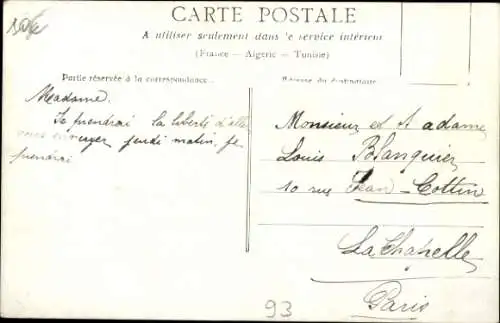 CARTE POSTALE
A utiliser seulement dans le service intérieur
(France — Algerie — Tunisie)
Partie réservée à la correspondance
Madame.
Je prendrai la liberté d'aller
vous envoyer jeudi matin, je
prendrai
Monsieur et Madame
Louis Blanquier
10 rue Jean-Cottin
La Chapelle
Paris
93